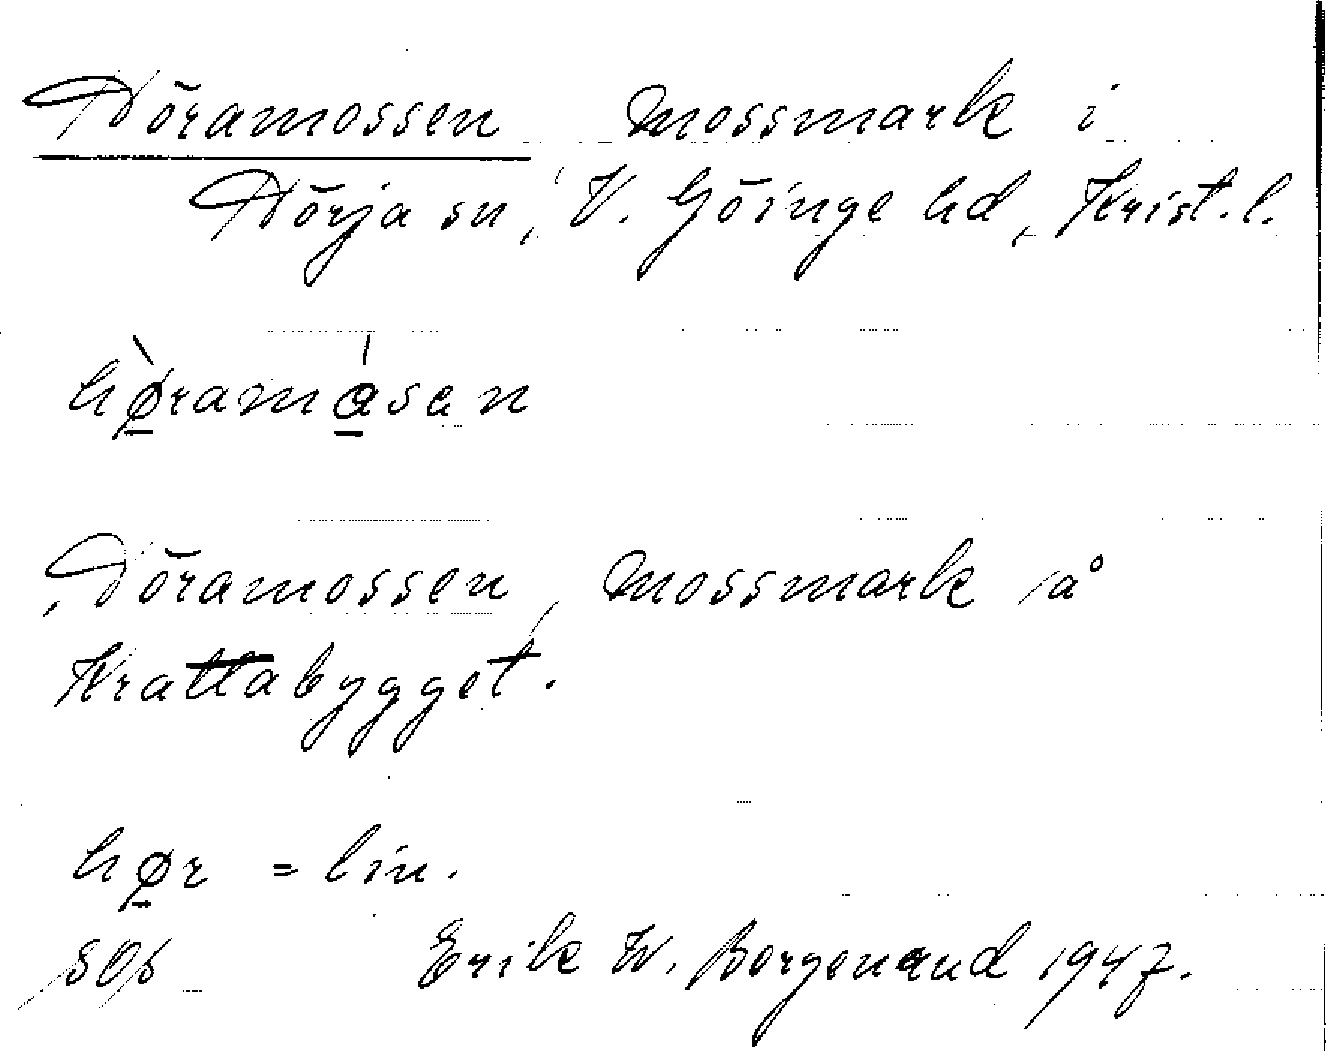 Höramossen mossmark i
Hörja sn, V. Göinge hd, Krist. l.
hø̱̀ramɑ̱́san
Höramossen, mossmark å
Krattabygget.
hø̱r = lin.
Erik W. Borgenand 1947.